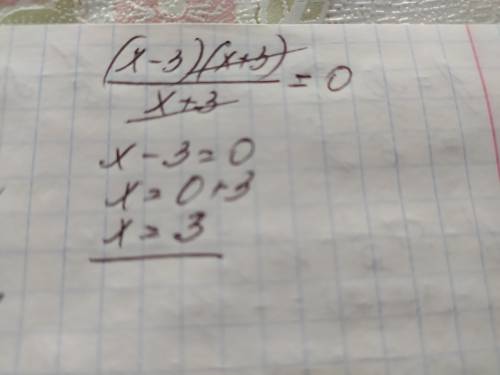 (x-3)(x+3)
/
x+3 = 0
x-3=0
x=0+3
x=3